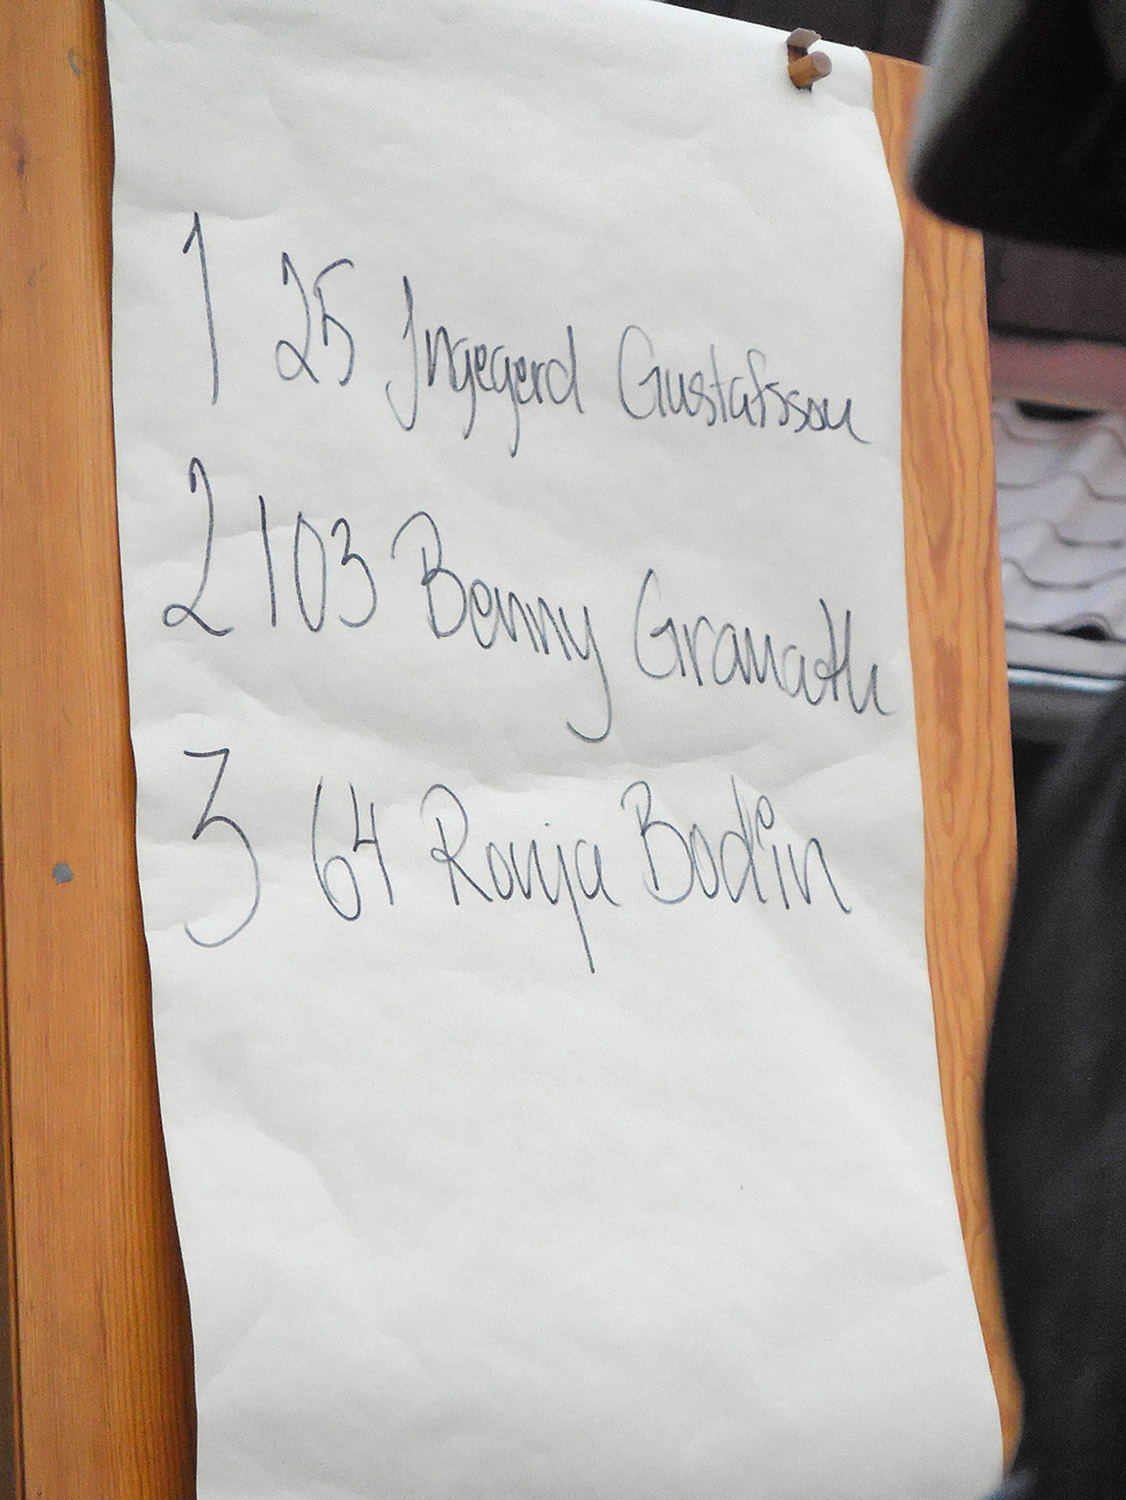 1 25 Ingegerd Gustafsson
2 103 Benny Granath
3 64 Ronja Bodin